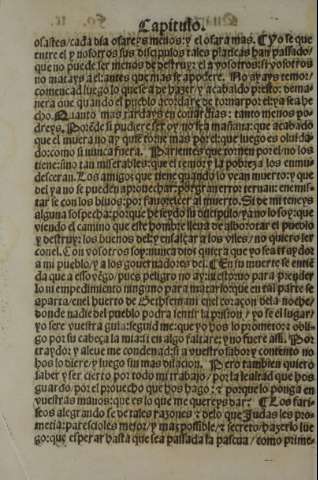 Capitulo.
osastes/cada dia osareys menos: y el osara mas. Yo se que
entre el y nosotros sus discipulos tales platicas han passado/
que no puede ser menos de destruyr: el a vosotros: si vosotros
no matays a el: antes que mas se apodere. No ayays temor/
començad luego lo que se a de hazer/y acabaldo presto: dema-
nera que quando el pueblo acordare de tornar por el: ya sea he
cho. Quanto mas tardays en
podreys. Porende si pudiere ser oy no sea mañana: que acabado
que el muera no ay que torne mas por el: que luego es oluida
do: como si nunca fuera. Parientes que tornen por el no los
tiene: sino tan miserables: que el temor y la pobreza los enmu
desceran. Los amigos que tiene quando lo vean muerto: y que
del ya no se pueden aprouechar: por gran error ternan: enemis
tar se con los biuos: por fauorescer al muerto. Si de mi teneys
alguna sospecha: porque he seydo su discipulo/ya no lo soy: que
viendo el camino que este hombre lleua de alborotar el pueblo
y destruyr: los buenos del: y ensalçar a los viles/no quiero ser
con el. Con vosotros soy: nunca dios quiera que yo sea traydor
a mi pueblo/y a los gouernadores del. En su muerte se entiē
da que a esso vengo/pues peligro no ay: ni estorno para prender
lo ni empedimiento ninguno para matarlo: que en tal parte se
aparta/en el huerto de Gethsemani en el coraçon dela noche/
donde nadie del pueblo podra sentir la prision/yo se el lugar/
yo sere vuestra guia: seguid me: que yo hos lo prometo: z obli
go por su cabeça la mia: si en algo faltare: y no fuere assi. Por
traydor y aleue me condenad: si a vuestro sabor y contento no
hos lo diere/y luego sin mas dilacion. Pero tambien quiero
saber y ser cierto por todo mi trabajo/por la lealtad que hos
guardo: por el prouecho que hos hago: z porque lo ponga en
vuestras manos: que es lo que me quereys dar? Los fari-
seos alegrando se de tales razones z delo que Judas les pro-
metia: parescioles mejor/y mas possible/z secreto/hazerlo lue
go: que esperar hasta que sea passada la pascua/como prime-